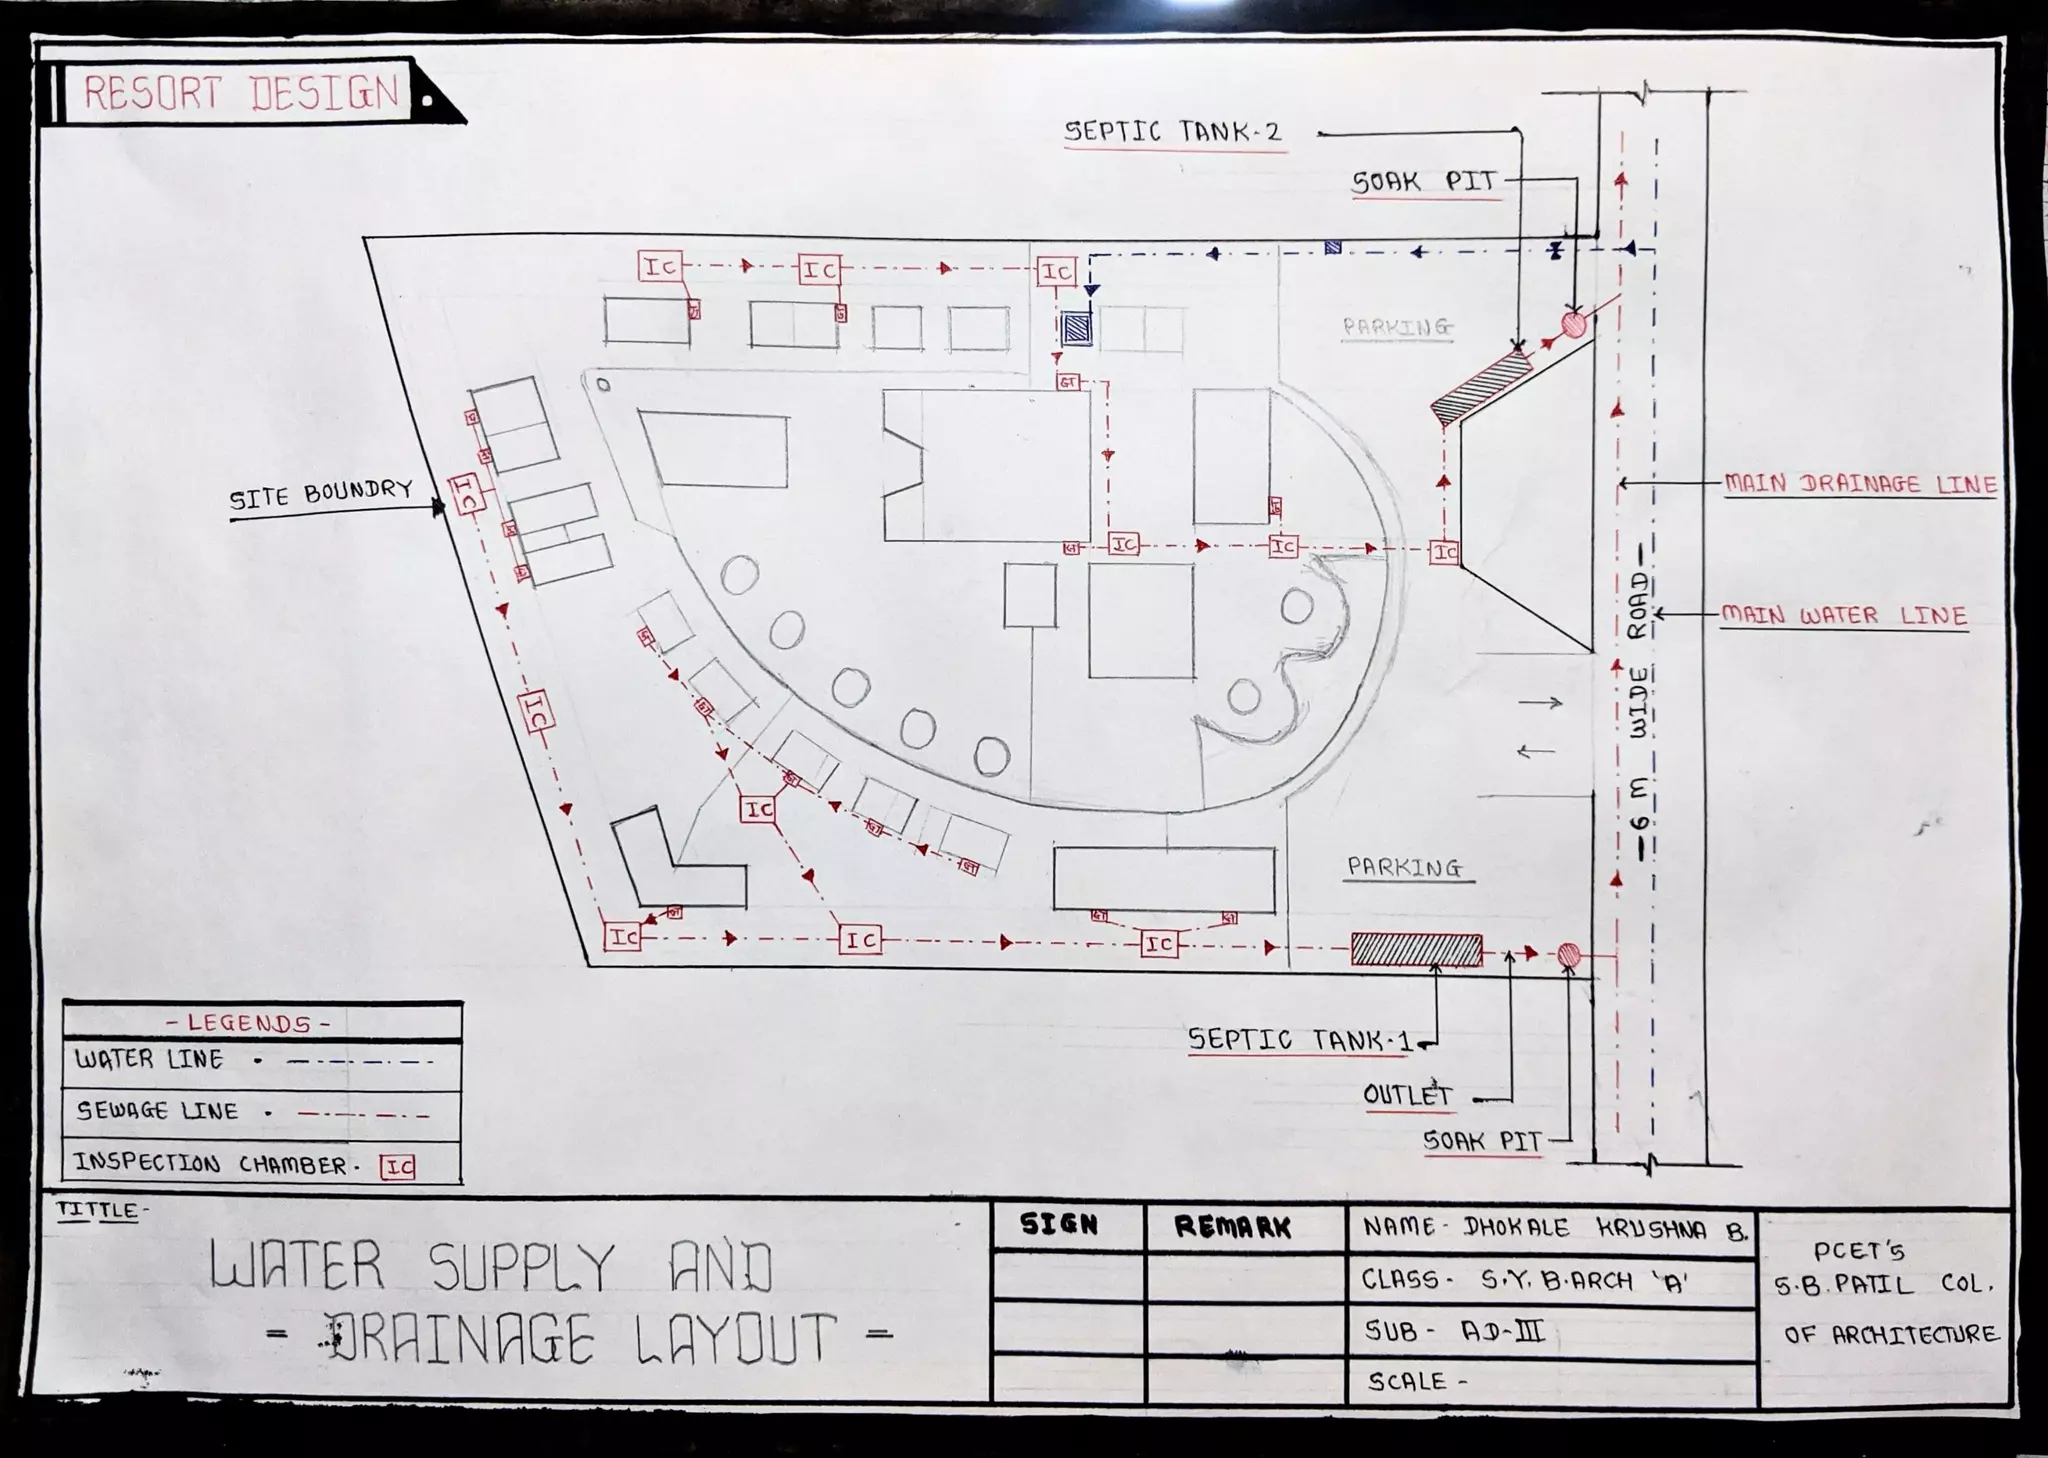 RESORT DESIGN
SEPTIC TANK-2
SOAK PIT
IC
IC
IC
PARKING
GT
SITE BOUNDRY
IC
MAIN DRAINAGE LINE
GT
IC
IC
IC
MAIN WATER LINE
-6 M WIDE ROAD-
IC
GT
GT
IC
GT
GT
PARKING
GT
GT
GT
IC
IC
IC
SEPTIC TANK-1
OUTLET
SOAK PIT
- LEGENDS -
WATER LINE
SEWAGE LINE
INSPECTION CHAMBER - IC
TITTLE-
WATER SUPPLY AND
= DRAINAGE LAYOUT =
SIGN
REMARK
NAME- DHOKALE KRUSHNA B.
CLASS- S.Y. B.ARCH 'A'
SUB - AD-III
SCALE -
PCET'S
S.B.PATIL COL.
OF ARCHITECTURE